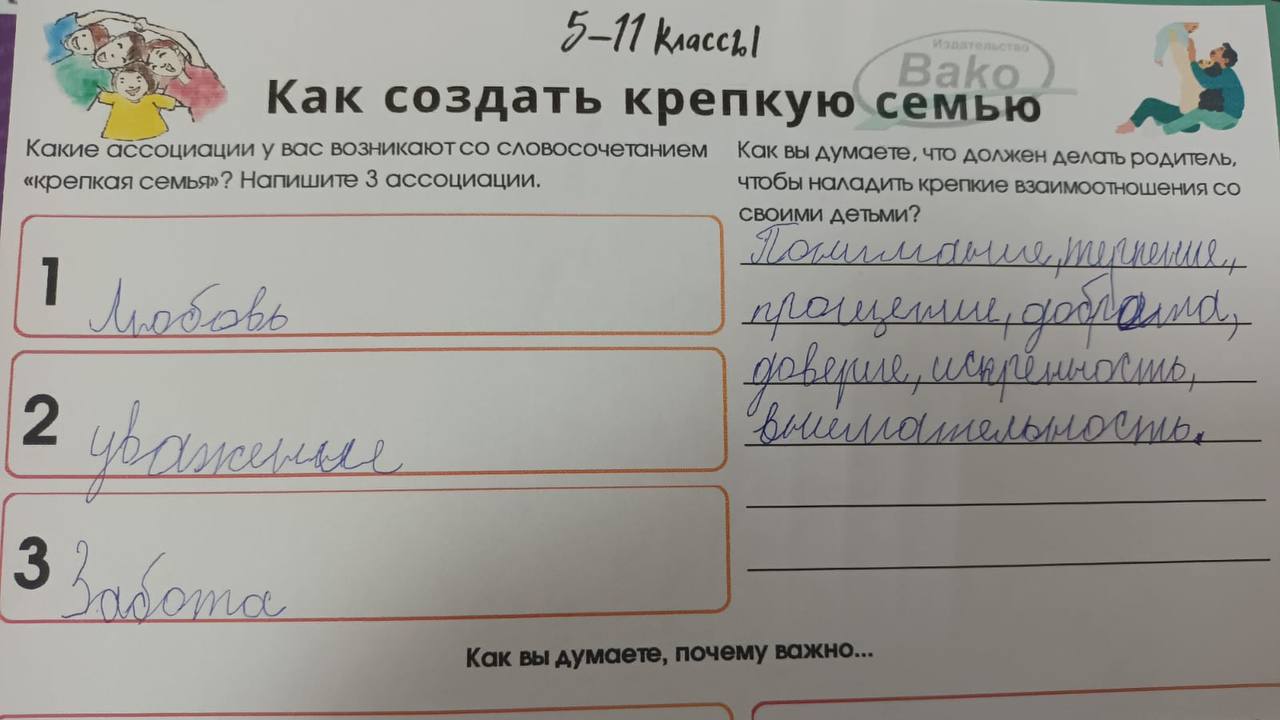 5-11 классы
Издательство
Bako
Как создать крепкую семью
Какие ассоциации у вас возникают со словосочетанием
«крепкая семья»? Напишите 3 ассоциации.
1
Любовь
2
уважение
3
Забота
Как вы думаете, что должен делать родитель,
чтобы наладить крепкие взаимоотношения со
своими детьми?
Понимание, терпение,
прощение, доброта,
доверие, искренность,
внимательность.
Как вы думаете, почему важно...